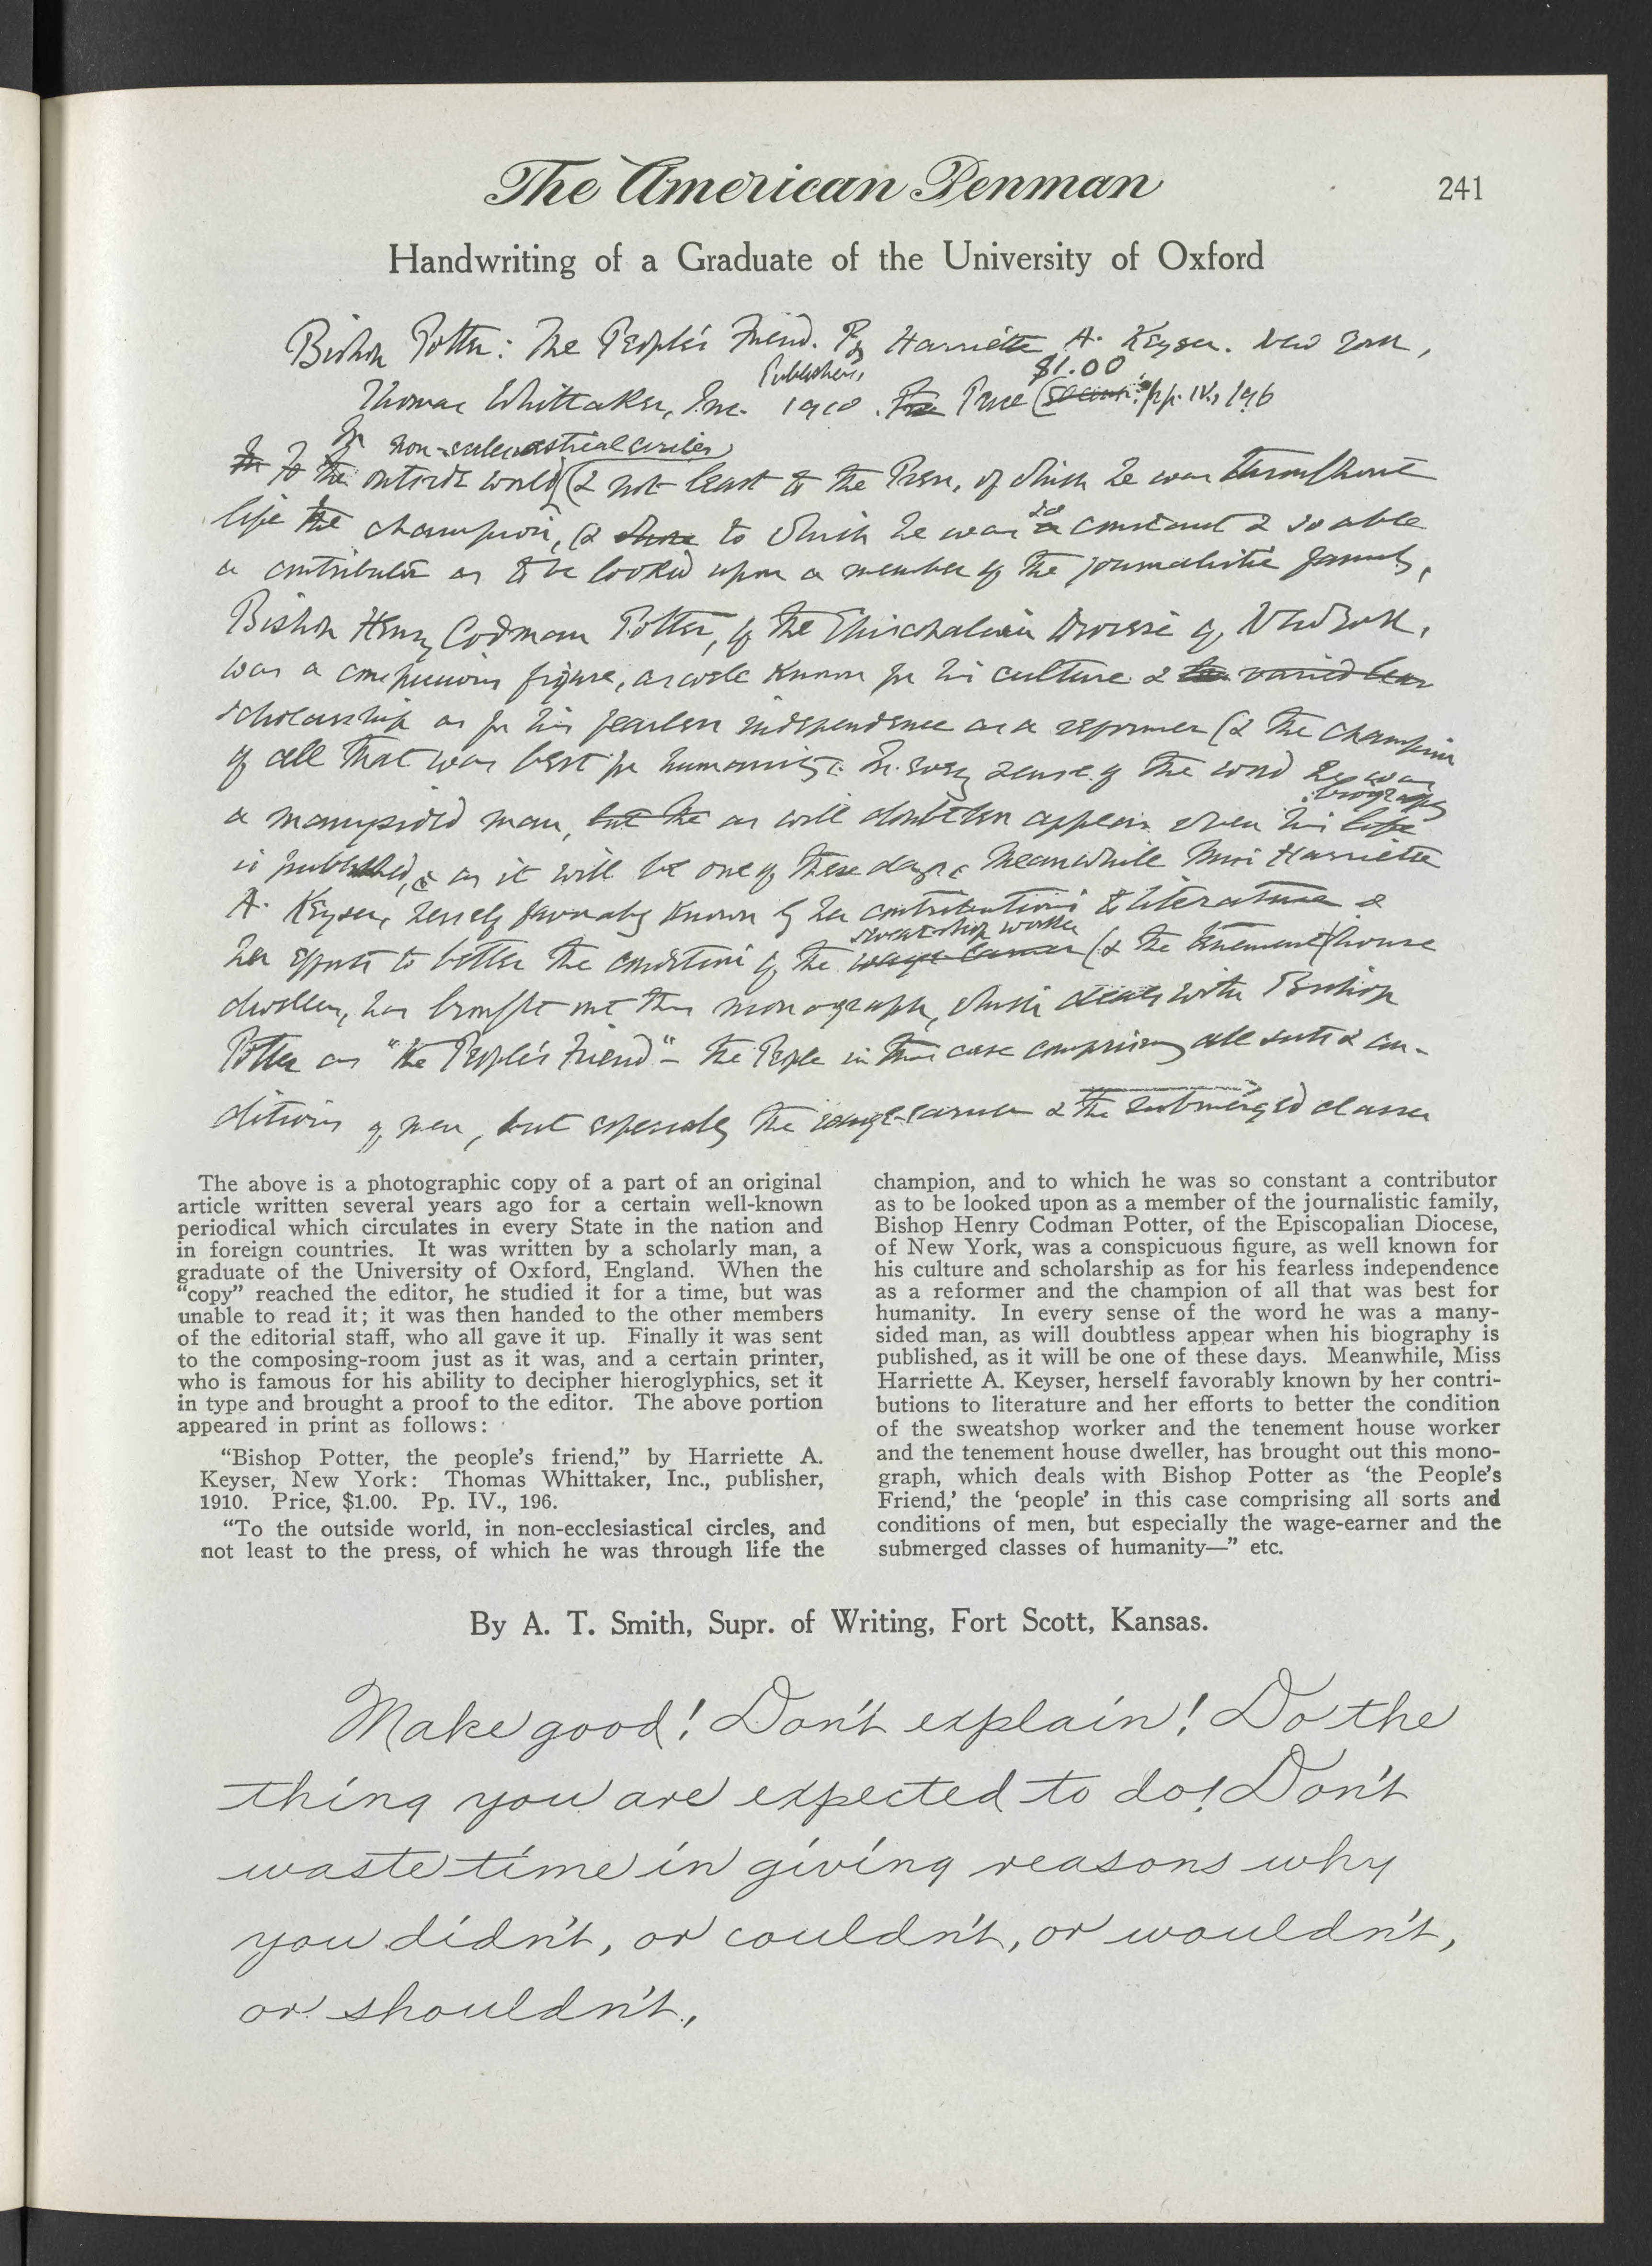 The American Penman
241
Handwriting of a Graduate of the University of Oxford
Bishop Potter: The People's Friend. By Harriette A. Keyser. New York,
Publishers,
$1.00
Thomas Whittaker, Inc. 1910. Price pp. IV., 196
In non-ecclesiastical circles,
To the outside world (& not least to the Press, of which he was throughout
life the champion, & to which he was so constant & so able
a contributor as to be looked upon a member of the journalistic family,
Bishop Henry Codman Potter, of the Episcopalian Diocese of New York,
was a conspicuous figure, as well known for his culture & varied
scholarship as for his fearless independence as a reformer (& the champion
of all that was best for humanity. In every sense of the word he was
biography
a manysided man, but he as will doubtless appear when his life
is published, as it will be one of these days. Meanwhile Miss Harriette
A. Keyser, herself favorably known by her contributions to literature &
sweatshop worker
her efforts to better the condition of the wage-earner (& the tenement house
dweller, has brought out this monograph, which deals with Bishop
Potter as "the People's Friend" – the People in this case comprising all sorts & con-
ditions of men, but especially the wage-earner & the submerged classes
The above is a photographic copy of a part of an original
article written several years ago for a certain well-known
periodical which circulates in every State in the nation and
in foreign countries. It was written by a scholarly man, a
graduate of the University of Oxford, England. When the
“copy” reached the editor, he studied it for a time, but was
unable to read it; it was then handed to the other members
of the editorial staff, who all gave it up. Finally it was sent
to the composing-room just as it was, and a certain printer,
who is famous for his ability to decipher hieroglyphics, set it
in type and brought a proof to the editor. The above portion
appeared in print as follows:
“Bishop Potter, the people’s friend,” by Harriette A.
Keyser, New York: Thomas Whittaker, Inc., publisher,
1910. Price, $1.00. Pp. IV., 196.
“To the outside world, in non-ecclesiastical circles, and
not least to the press, of which he was through life the
champion, and to which he was so constant a contributor
as to be looked upon as a member of the journalistic family,
Bishop Henry Codman Potter, of the Episcopalian Diocese,
of New York, was a conspicuous figure, as well known for
his culture and scholarship as for his fearless independence
as a reformer and the champion of all that was best for
humanity. In every sense of the word he was a many-
sided man, as will doubtless appear when his biography is
published, as it will be one of these days. Meanwhile, Miss
Harriette A. Keyser, herself favorably known by her contri-
butions to literature and her efforts to better the condition
of the sweatshop worker and the tenement house worker
and the tenement house dweller, has brought out this mono-
graph, which deals with Bishop Potter as ‘the People’s
Friend,’ the ‘people’ in this case comprising all sorts and
conditions of men, but especially the wage-earner and the
submerged classes of humanity—” etc.
By A. T. Smith, Supr. of Writing, Fort Scott, Kansas.
Make good! Don't explain! Do the
thing you are expected to do! Don't
waste time in giving reasons why
you didn't, or couldn't, or wouldn't,
or shouldn't,